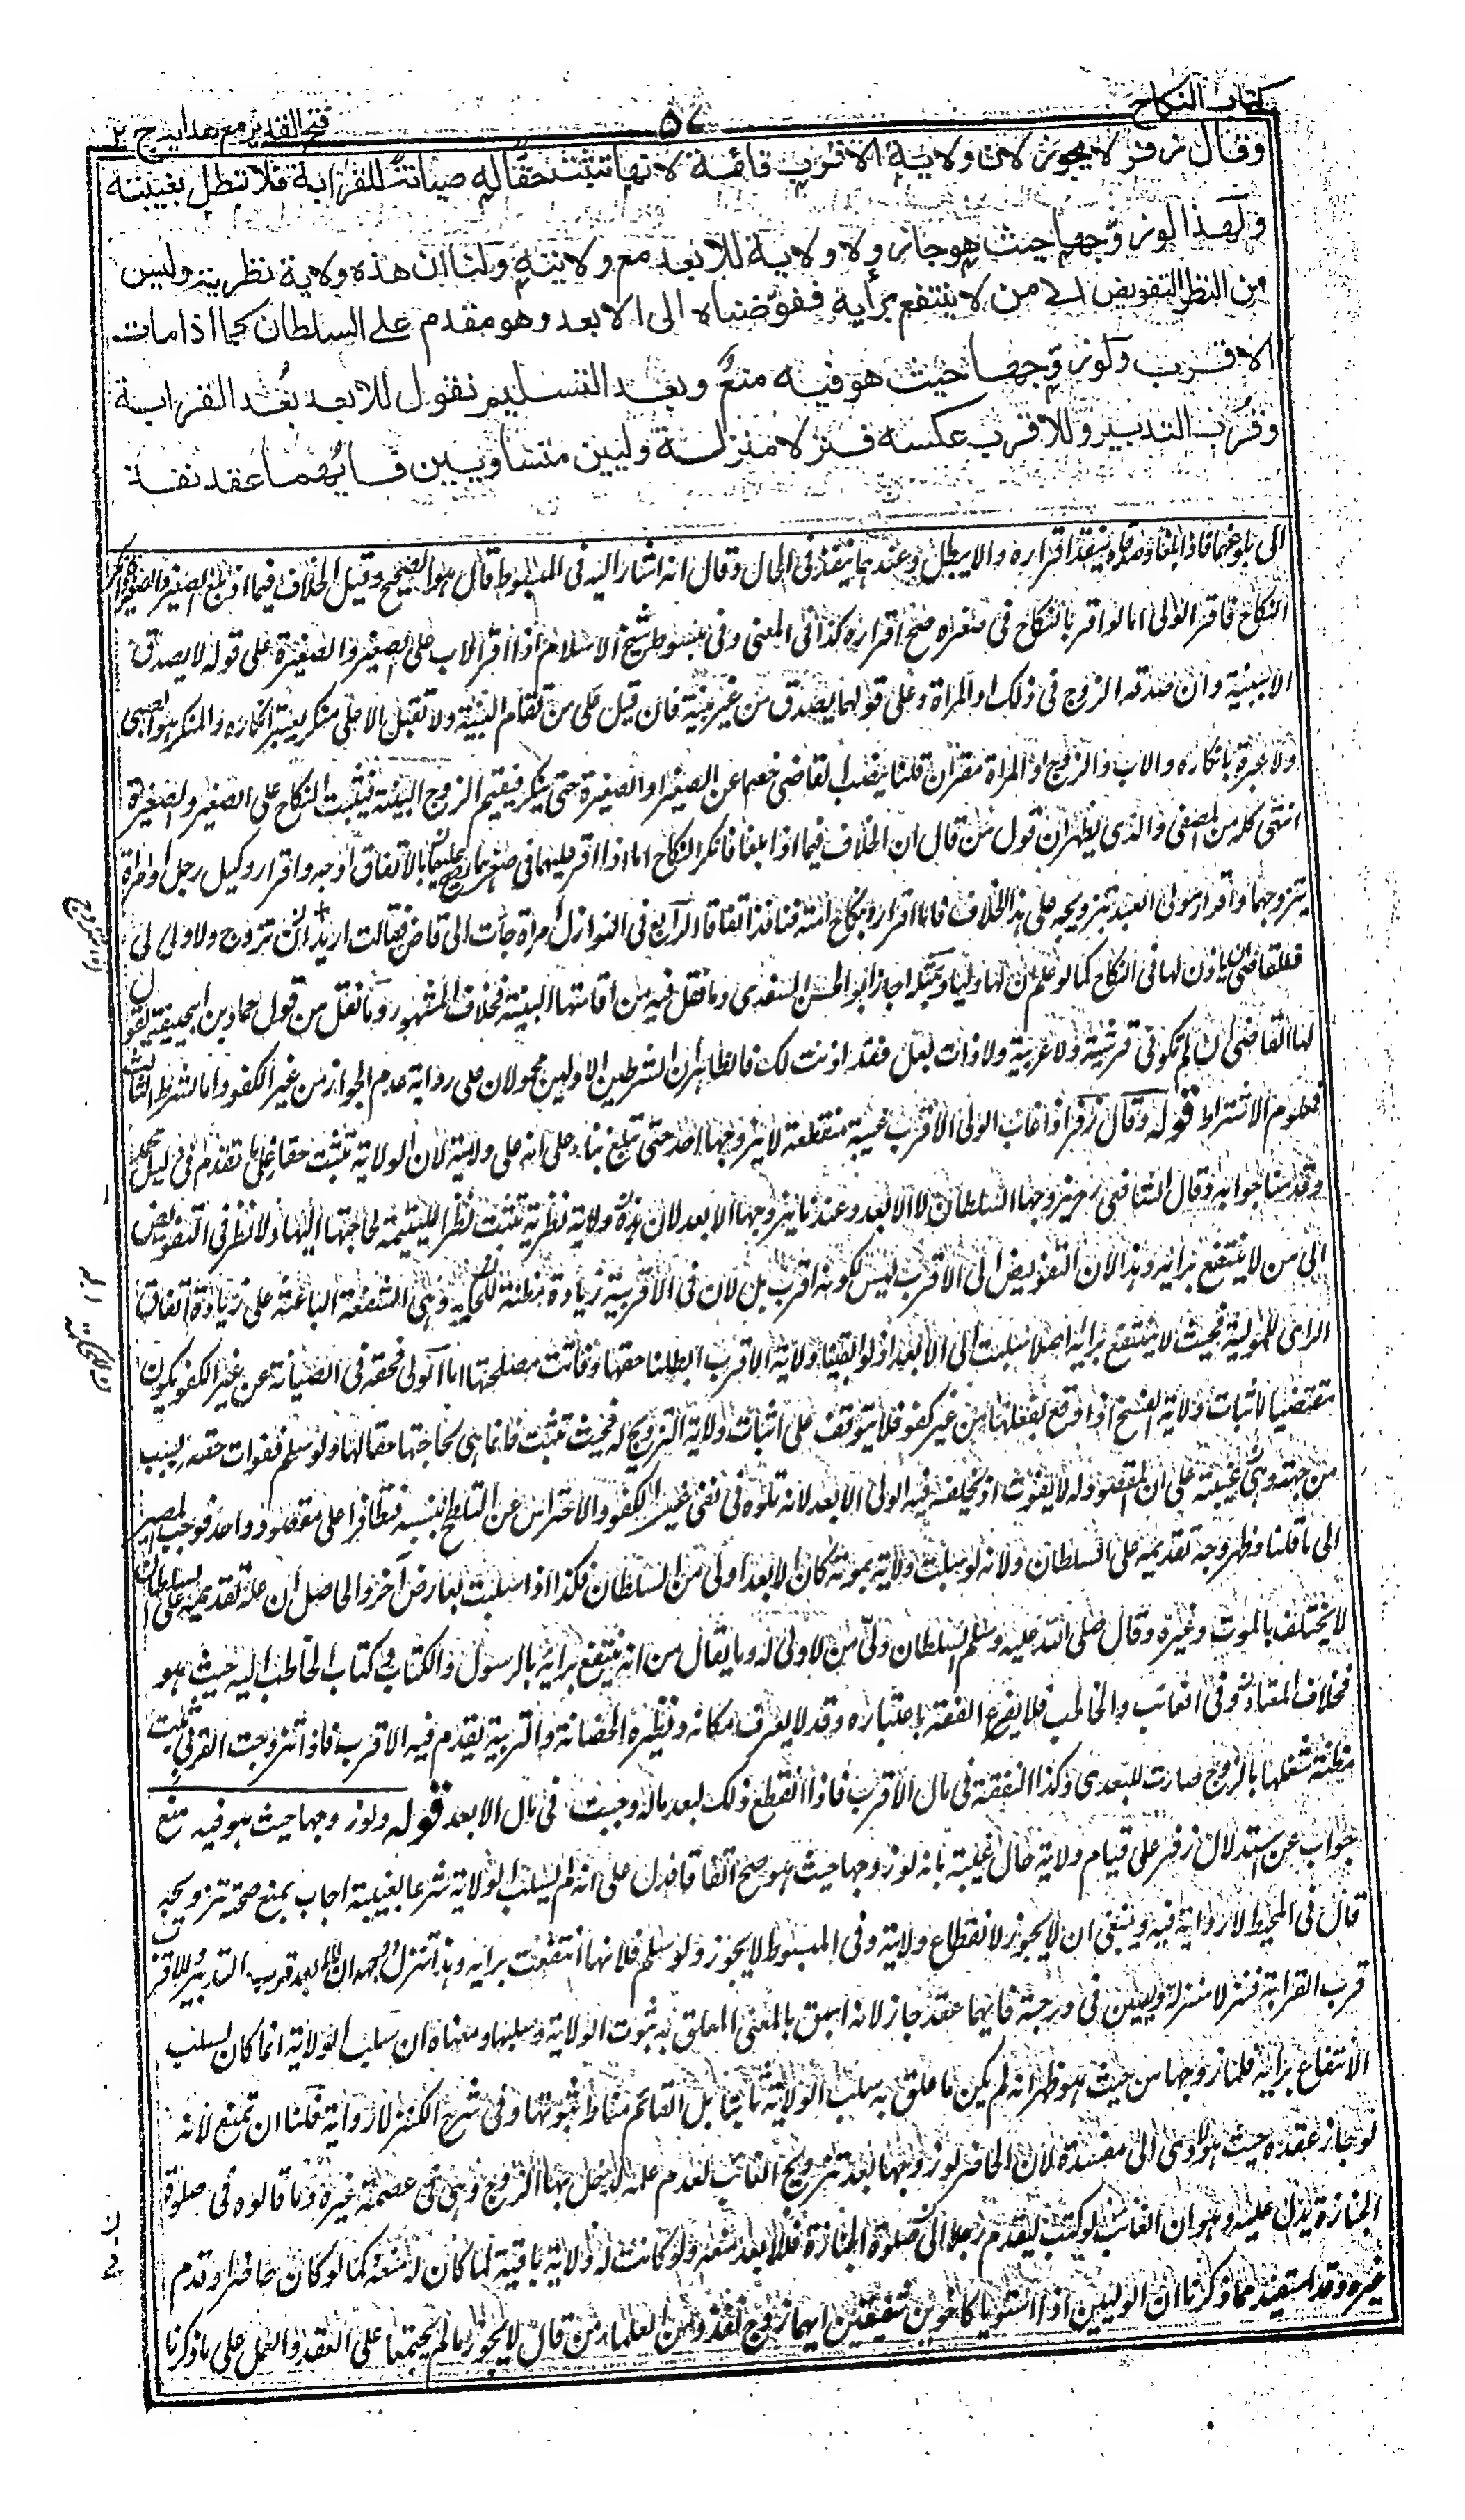 كتاب النكاح
٥٧
فتح القدير مع هدايه ج ٢
وقال زفر لا يجوز لان ولاية الاقرب قائمة لانها تثبت حقا له صيانة للقرابة فلا تبطل بغيبته
ولهذا لو زوجها حيث هو جاز ولا ولاية للابعد مع ولايته ولنا ان هذه ولاية نظرية وليس
من النظر التفويض الى من لا ينتفع برأيه ففوضناه الى الابعد وهو مقدم على السلطان كما اذا مات
الاقرب ولو زوجها حيث هو فيه منع وبعد التسليم نقول للابعد بعد القرابة
وقرب التدبير وللاقرب عكسه فنزلا منزلة وليين متساويين فايهما عقد نفذ
الى بلوغهما فاذا بلغا وصدقاه ينفذ اقراره والا يبطل وعندهما ينفذ فى الحال وقال انه اشار اليه فى المبسوط قال هو الصحيح وقيل الخلاف فيما اذا بلغ الصغير والصغيرة
النكاح فاقر الولى اما لو اقر بالنكاح فى صغره صح اقراره كذا فى المغنى وفى مبسوط شيخ الاسلام اذا اقر الاب على الصغير والصغيرة على قوله لا يصدق
الا ببينة وان صدقه الزوج فى ذلك او المراة وعلى قولهما يصدق من غير بينة فان قيل على من تقام البينة ولا تقبل الا على منكر يعتبر انكاره والمنكر هو الصبى
ولا عبرة بانكاره والاب والزوج او المراة مقران قلنا ينصب القاضى خصما عن الصغير او الصغيرة حتى ينكر فيقيم الزوج البينة فيثبت النكاح على الصغير والصغيرة
انتهى كله من المصفى والذى يظهر ان قول من قال ان الخلاف فيما اذا بلغا فانكر النكاح اما اذا اقر عليهما فى صغرهما يصح بالاتفاق اوجه واقرار وكيل رجل او امراة
بتزوجهما واقرار مولى العبد بتزويجه على هذا الخلاف فاما اقراره بنكاح امته فنافذ اتفاقا الرابع فى النوازل امراة جاءت الى قاض فقالت اريد ان تزوج ولا ولى لى
فللقاضى ان ياذن لها فى النكاح كما لو علم ان لها وليا اجاز ابو الحسن السغدى وما نقل فيه من اقامتها البينة فخلاف المشهور وما نقل من قول حماد بن ابى حنيفة يقول
لها القاضى ان لم تكونى قرشية ولا عربية ولا ذات بعل فقد اذنت لك فالظاهر ان الشرطين الاولين محمولان على رواية عدم الجواز من غير الكفو واما الشرط الثالث
فمعلوم الاشتراط قوله وقال زفر اذا غاب الولى الاقرب غيبة منقطعة لا يزوجها احد حتى تبلغ بناء على انه على ولايته لان الولاية تثبت حقا على ما تقدم فى دليل
وقدمنا جوابه وقال الشافعى يزوجها السلطان لا الابعد وعندنا يزوجها الابعد لان هذه ولاية نظرية تثبت نظرا لليتيمة لحاجتها اليها ولا نظر فى التفويض
الى من لا ينتفع برايه وهذا لان التفويض الى الاقرب ليس لكونه اقرب بل لان فى الاقربية زيادة مظنة للحكمة وهى الشفقة الباعثة على زيادة اتقان
الراى للمولية فحيث لا ينتفع برايه اصلا سلبت الى الابعد اذ لو ابقينا ولاية الاقرب ابطلنا حقها وفاتت مصلحتها اما الولى فحقه فى الصيانة عن غير الكفو يكون
مقتضيا لاثبات ولاية الفسخ اذا وقع بفعلها من غير كفو فلا يتوقف على اثبات ولاية التزويج له فحيث تثبت فانما هى لحاجتها حقا لها ولو سلم ففوات حقه بسبب
من جهته وهى غيبته على ان المقصود له لا يفوت اذ يخلفه فيه الولى الابعد لانه تلوه فى نفى غير الكفو والاحتراس عن التلطخ بنسبه فتظافرا على مقصود واحد فوجب المصير
الى ما قلنا وظهر وجه تقديمه على السلطان ولانه لو سلبت ولايته بموته كان الابعد اولى من السلطان فكذا اذا سلبت بعارض آخر والحاصل ان علة تقديمه على السلطان
لا يختلف بالموت وغيره وقال صلى الله عليه وسلم السلطان ولى من لا ولى له وما يقال من انه ينتفع برايه بالرسول والكتاب فى كتاب الخاطب اليه حيث هو
فخلاف المعتاد فى الغائب والخاطب فلا يفرع الفقه باعتباره وقد لا يعرف مكانه ونظيره الحضانة والتربية يقدم فيه الاقرب فاذا تزوجت القربى ثبت
مظنة شغلها بالزوج صارت للبعدى وكذا النفقة فى مال الاقرب فاذا انقطع ذلك لبعد ماله وجبت فى مال الابعد قوله ولو زوجها حيث هو فيه منع
جواب عن استدلال زفر على قيام ولاية حال غيبته بانه لو زوجها حيث هو صح اتفاقا فدل على انه لم يسلب الولاية شرعا بغيبته اجاب بمنع صحة تزويجه
قال فى المحيط لا رواية فيه وينبغى ان لا يجوز لانقطاع ولايته وفى المبسوط لا يجوز ولو سلم فلانها انتفعت برايه وهذا تنزل وهو ان للابعد قرب التدبير وللاقرب
قرب القرابة فنزلا منزلة وليين فى درجة فايهما عقد جاز لانه اسبق بالمعنى المعلق به ثبوت الولاية وسلبها ومعناه ان سلب الولاية انما كان لسلب
الانتفاع برايه فلما زوجها من حيث هو ظهر انه لم يكن ما علق به سلب الولاية ثابتا بل القائم مناط ثبوتها وفى شرح الكنز لا رواية فلنا ان تمنع لانه
لو جاز عقده حيث هو لادى الى مفسدة لان الحاضر لو زوجها بعد تزويج الغائب لعدم علمه لدخل بها الزوج وهى فى عصمة غيره وما قالوه فى صلوة
الجنازة يدل عليه وهو ان الغائب لو كتب ليقدم رجلا الى صلوة الجنازة فللابعد منعه ولو كانت له ولاية باقية لما كان له منعه كما لو كان حاضرا وقدم
غيره وقد استفيد مما ذكرنا ان الوليين اذا استويا كاخوين شقيقين ايهما زوج نفذ ومن العلماء من قال لا يجوز ما لم يجتمعا على العقد والعمل على ما ذكرنا